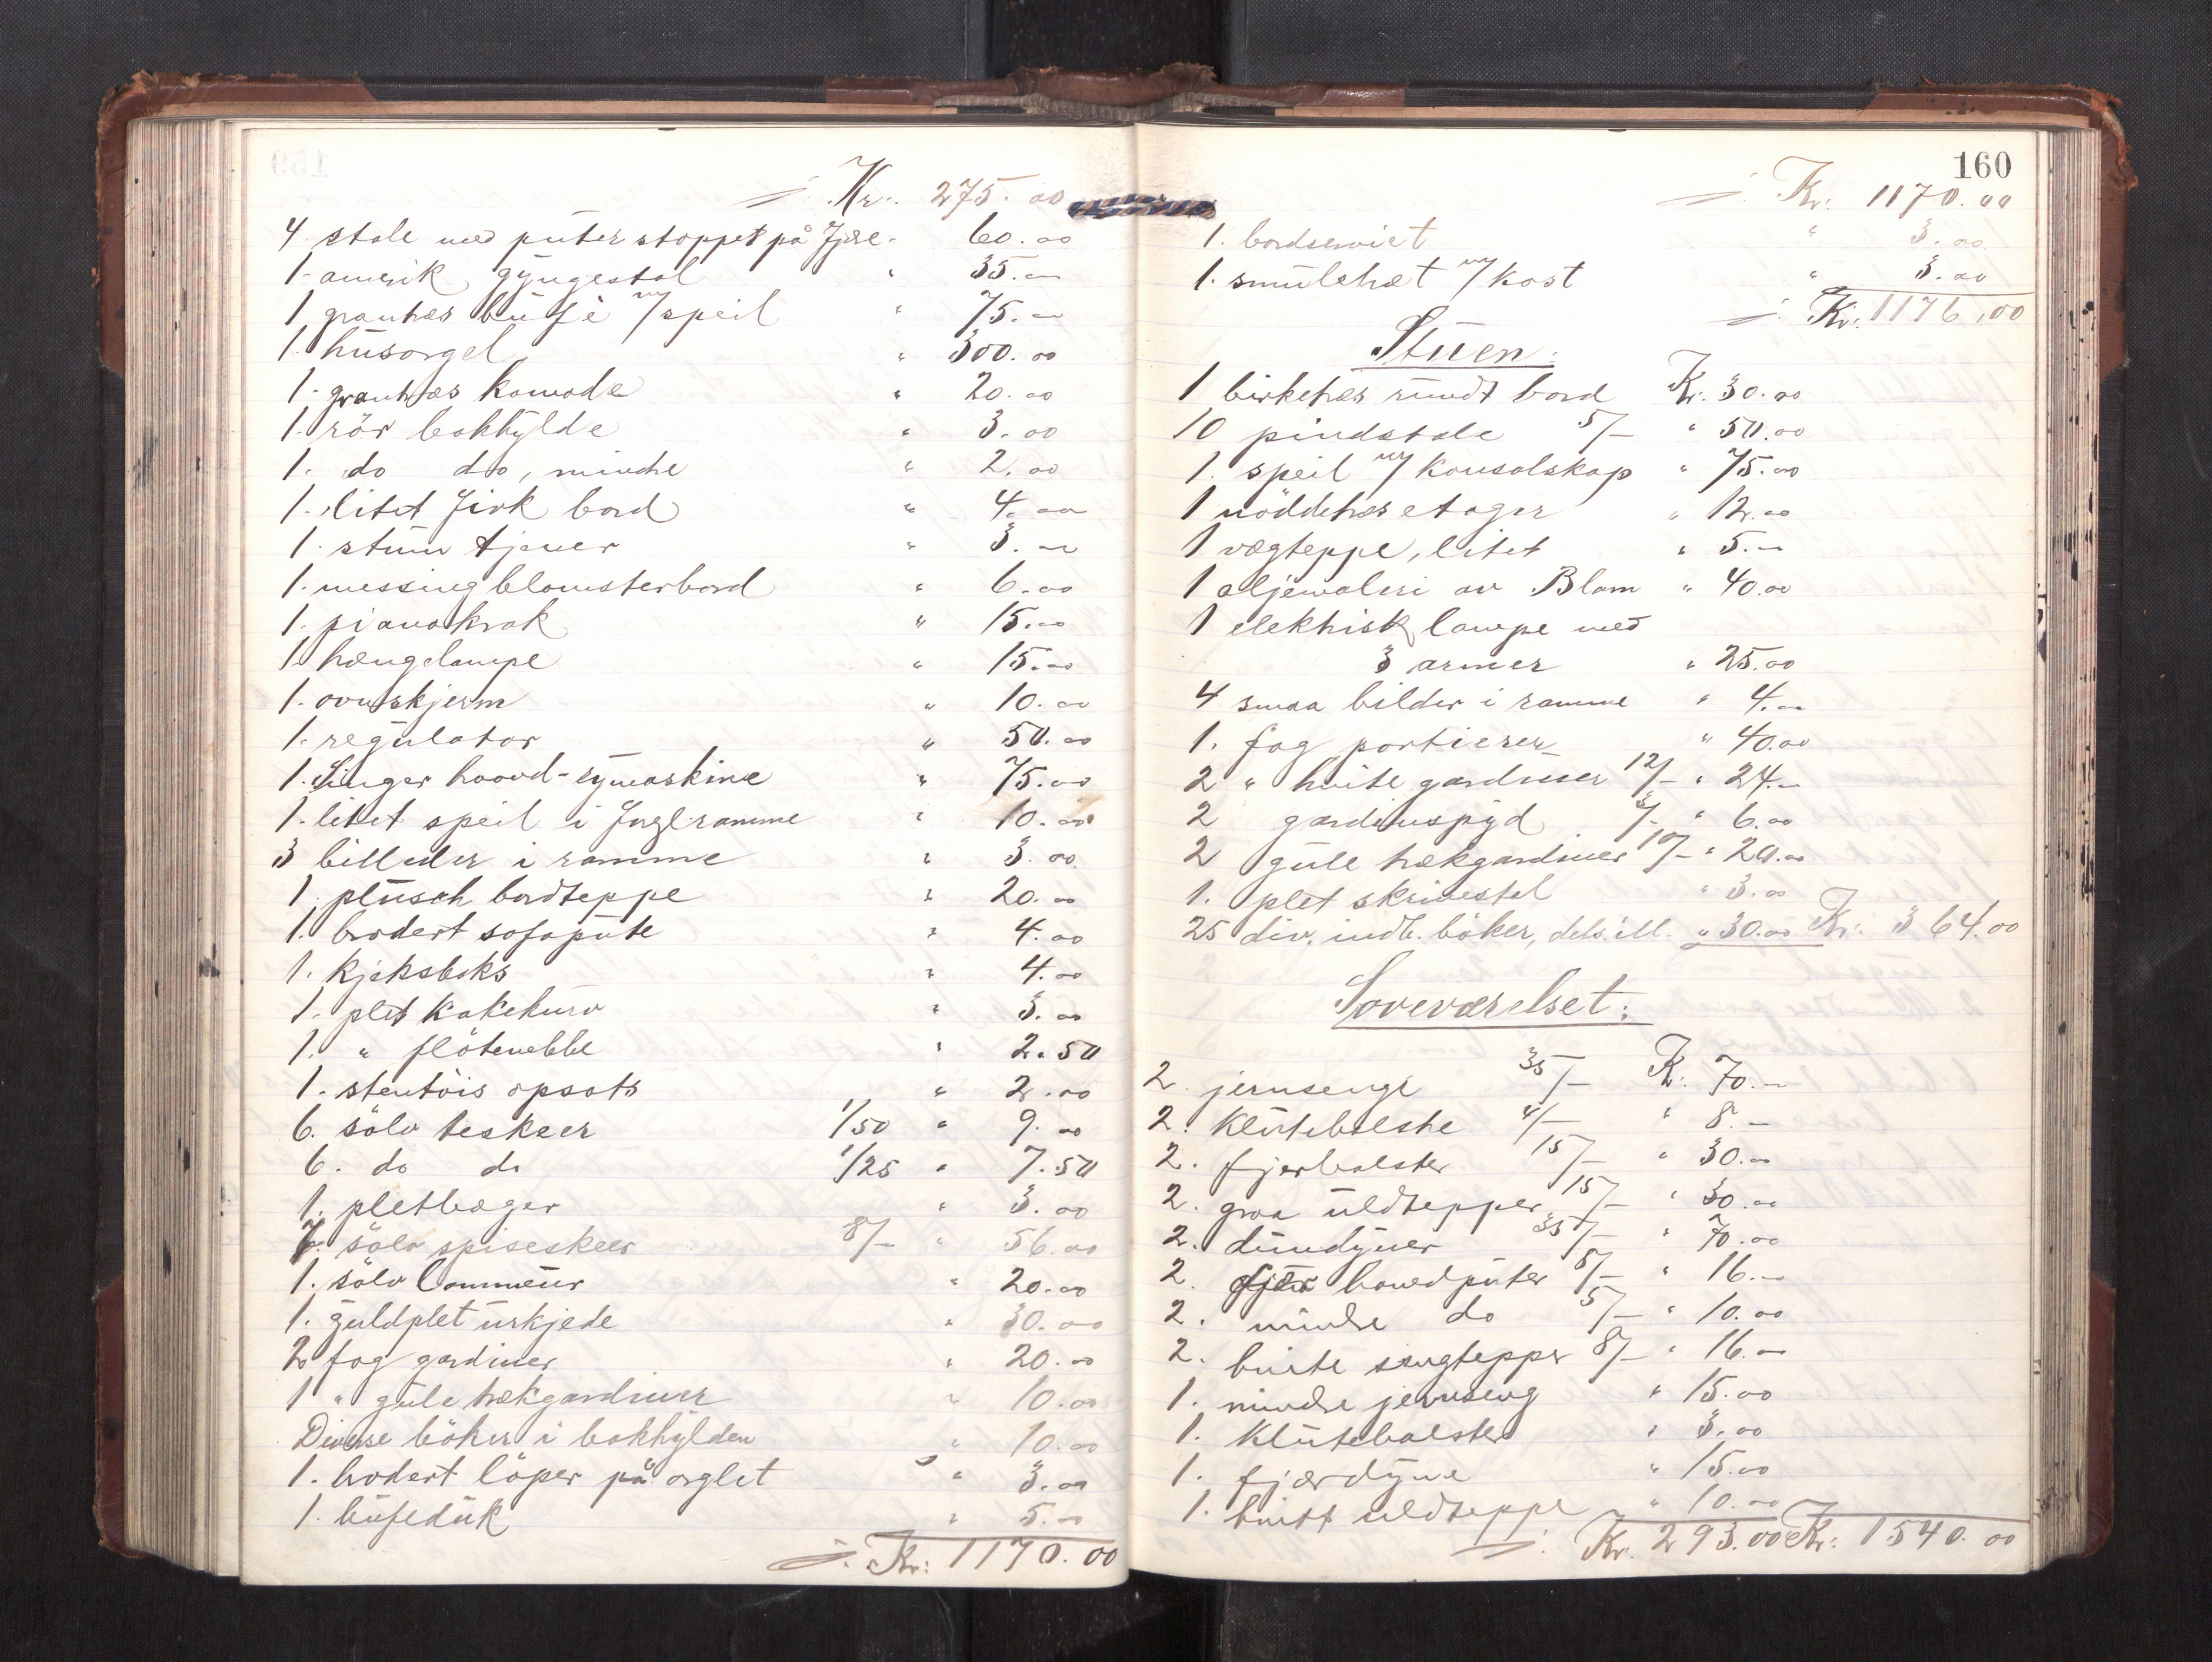 Kr. 275.00
4 stole med puter stoppet på fjæe. 60.00
1. amerik. gyngestol " 35.00
1 grantræs büfè m/speil " 75.00
1. husorgel " 300.00
1. grantræs komode " 20.00
1. rör bokhylde " 3.00
1. do do, mindre " 2.00
1. litet firk. bord " 4.00
1. stum tjener " 3.00
1. messing blomsterbord " 6.00
1. pianokrak " 15.00
1. hængelampe " 15.00
1. ovnskjerm " 10.00
1. regulator " 50.00
1. Singer haand-symaskine " 75.00
1. litet speil i forgl. ramme " 10.00
3 billeder i ramme " 3.00
1. plüsch bordteppe " 20.00
1. brodert sofapute " 4.00
1. kjeksboks " 4.00
1. plet kakekurv " 3.00
1. " flötenebbe " 2.50
1. stentöis opsats " 2.00
6. sölv teskeer 1/50 " 9.00
6. do do 1/25 " 7.50
1. pletbæger " 3.00
7. sölv spiseskeer 8/- " 56.00
1. sölv lommeur " 20.00
1. guldplet urkjede " 30.00
2 fag gardiner " 20.00
1 " gule trækgardiner " 10.00
Diverse böker i bokhylden " 10.00
1. brodert löper på orglet " 3.00
1. büfeduk " 5.00
Kr: 1170.00
160
Kr: 1170.00
1. bordserviet " 3.00
1. smulebræt m/kost " 3.00
Kr: 1176,00
Stuen:
1 birketræs rundt bord Kr. 30.00
10 pindstole 5/- " 50.00
1. speil m/konsolskap " 75.00
1 nöddetræs etager " 12.00
1 vægteppe, litet " 5.00
1 oljemaleri av Blom " 40.00
1 elektrisk lampe med
3 armer " 25.00
4 smaa bilder i ramme " 4.00
1. fag portierer " 40.00
2 " hvite gardiner 12/- " 24.-
2 gardinspyd 3/- " 6.00
2 gule trækgardiner 10/- " 20.00
1. plet skrivestel " 3.00
25 div. indb. böker, dels ill. " 30.00 Kr. 364.00
Soveværelset:
2. jernsenge 35/- Kr. 70.-
2. Klutebolstre 4/- " 8.-
2. fjerbolster 15/- " 30.00
2. graa uldtepper 15/- " 30.00
2. dundyner 35/- " 70.00
2. fjær hovedputer 8/- " 16.-
2. mindre do 5/- " 10.00
2. hvite sengtepper 8/- " 16.00
1. mindre jernseng " 15.00
1. Klutebolster " 3.00
1. fjærdyne " 15.00
1. hvitt uldteppe " 10.00
Kr. 293.00 Kr: 1540.00